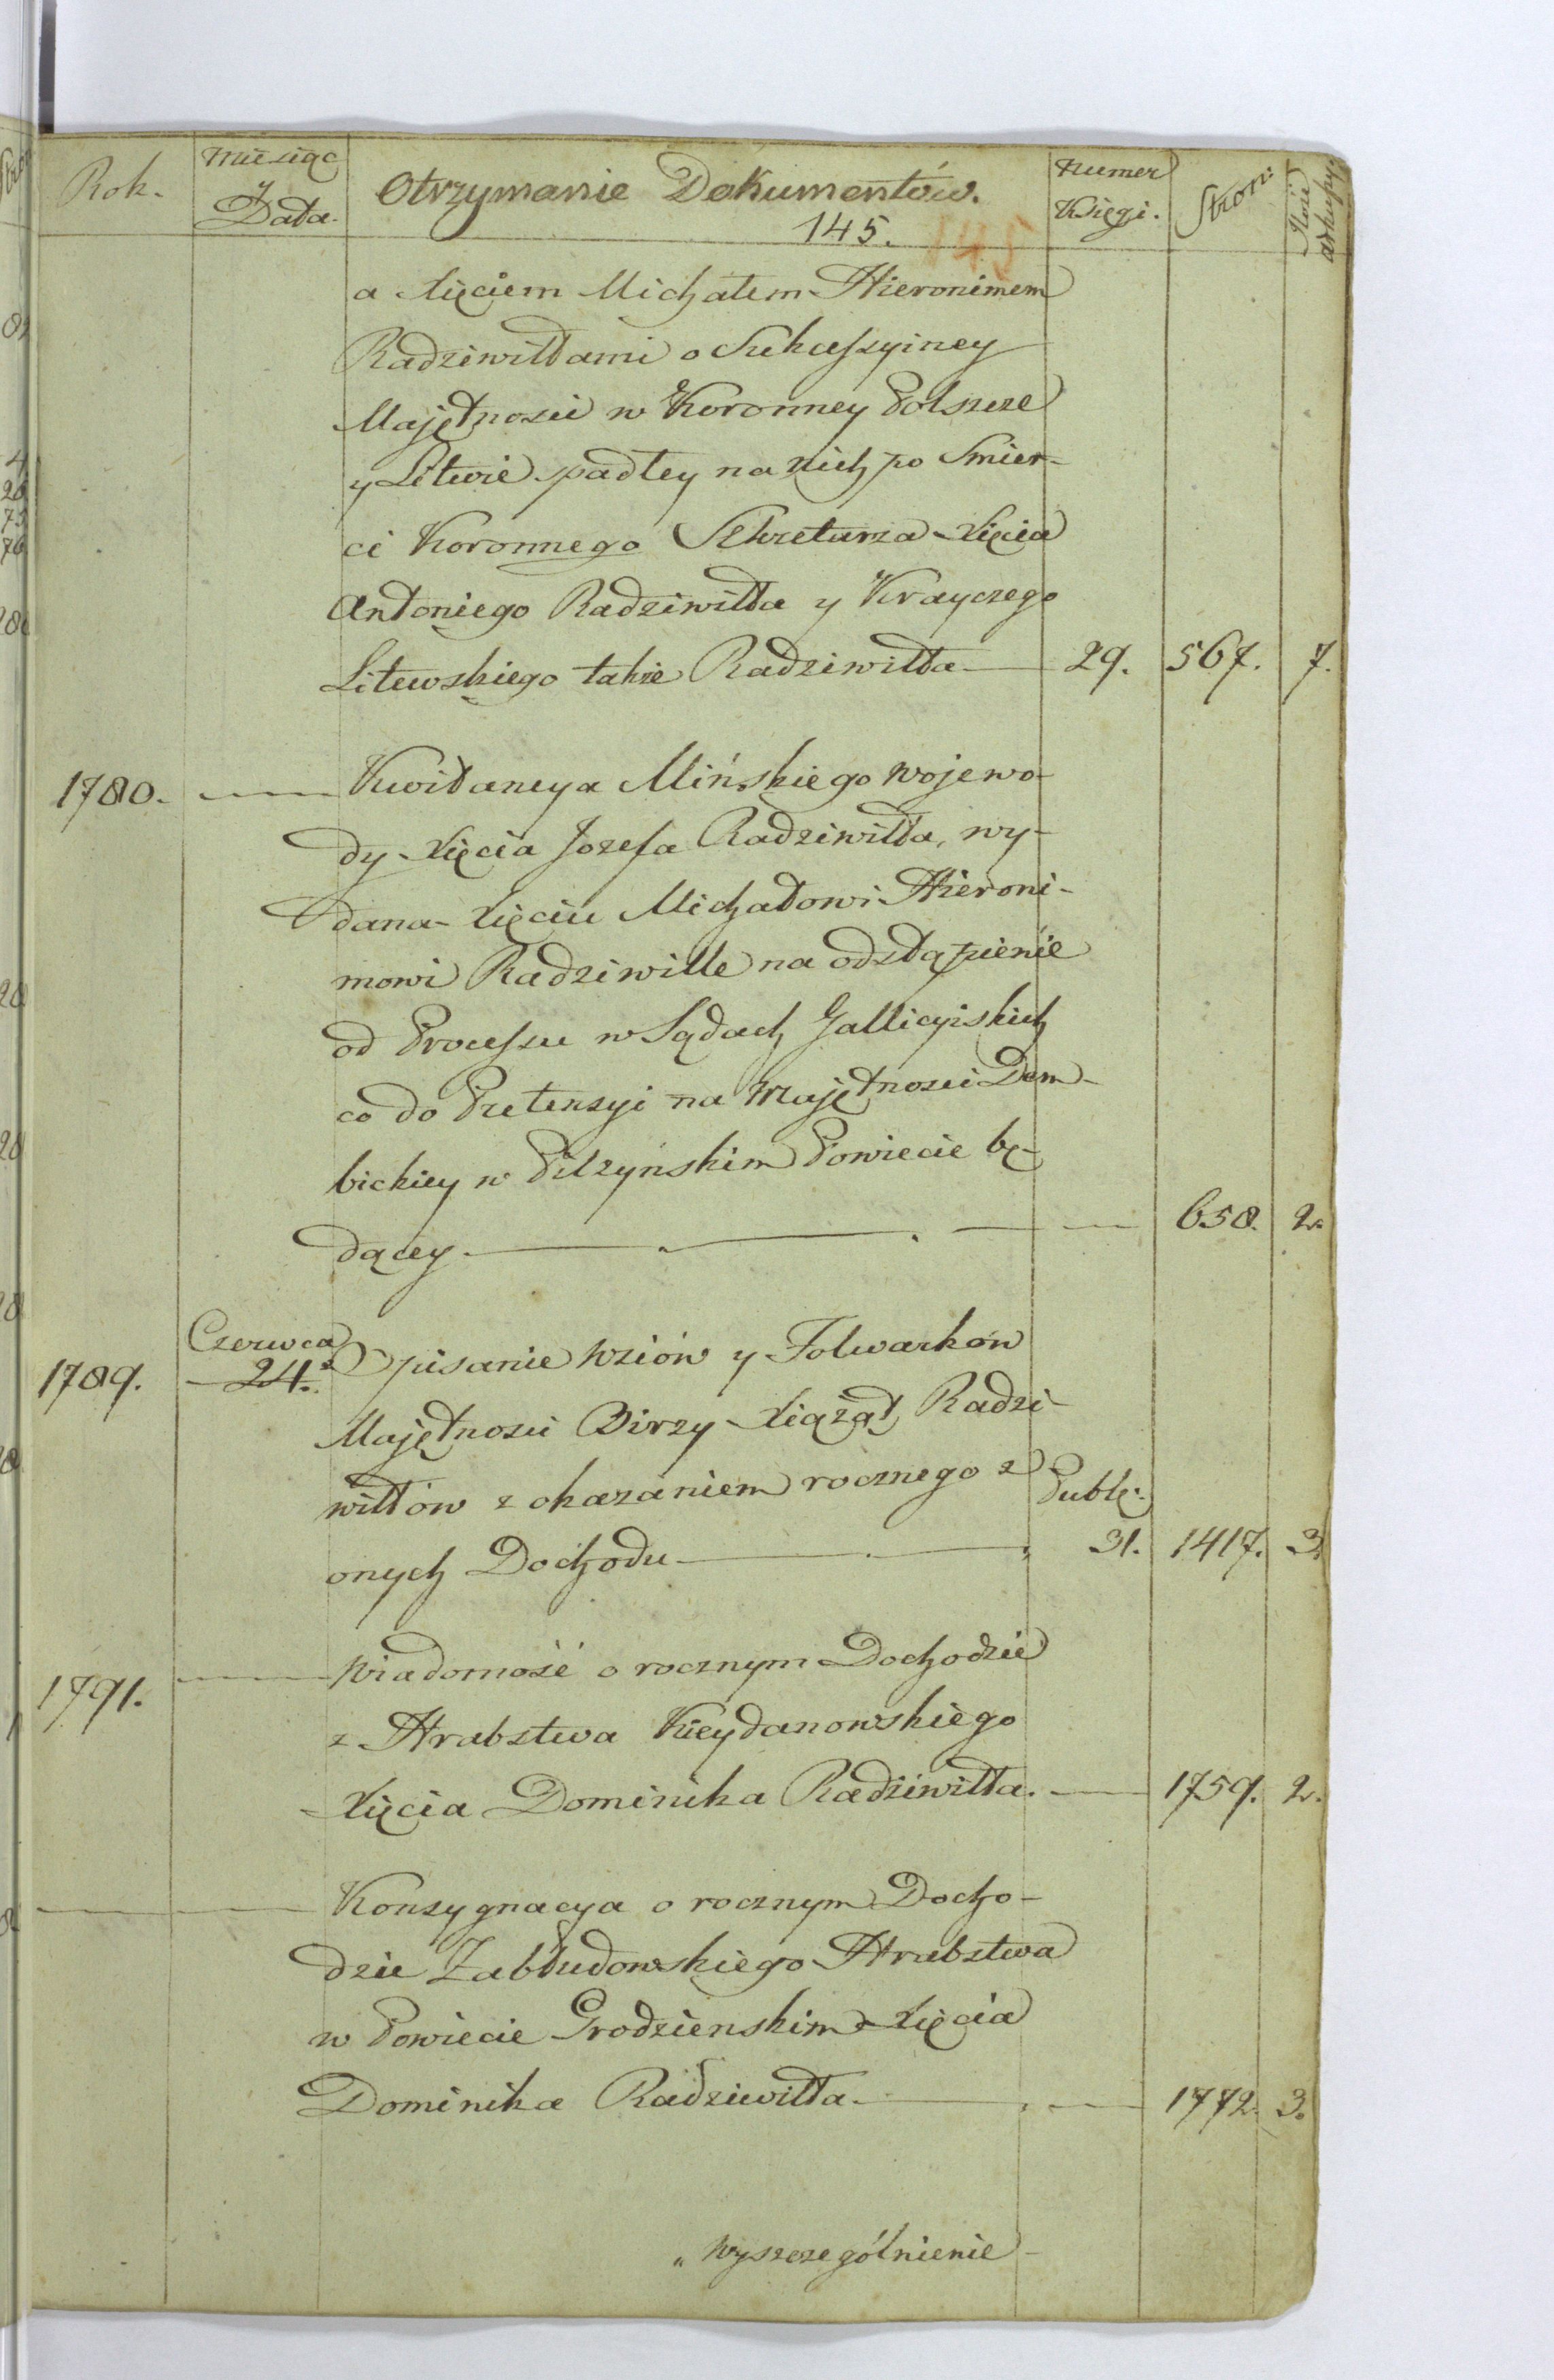 Rok. Miesiąc y Data. Otrzymanie Dokumentów. Numer Księgi. Stron: Ilość arkuszy
145. 145
a Xięciem Michałem Hieronimem
Radziwiłłami o Sukcessyiney
Majętności w Koronney Polszcze
y Litwie spadłey na nich po Smier-
ci Koronnego Sekretarza Xięcia
Antoniego Radziwiłła y Krayczego
Litewskiego także Radziwiłła — 29. 567. 7.
1780. — Kwitancya Mińskiego Wojewo-
dy Xięcia Jozefa Radziwiłła, wy-
dana Xięciu Michałowi Hieroni-
mowi Radziwille na odstąpienie
od Processu w Sądach Gallicyiskich
co do Pretensyi na Majętnosci Dem-
bickiey w Pilzyńskim Powiecie bę-
dącey — — 658. 2.
1789. Czerwca 24. Opisanie Wsiów y Folwarków
Majętnosci Birzy Xiążąt Radzi-
wiłłów z okazaniem rocznego z Publ:
onych Dochodu — 31. 1417. 3.
1791. — Wiadomość o rocznym Dochodzie
z Hrabstwa Kieydanowskiego
Xięcia Dominika Radziwiłła. — 1759. 2.
— — Konsygnacya o rocznym Docho-
dzie Zabłudowskiego Hrabstwa
w Powiecie Grodzienskim Xięcia
Dominika Radziwiłła — — 1772. 3.
„ Wyszczególnienie